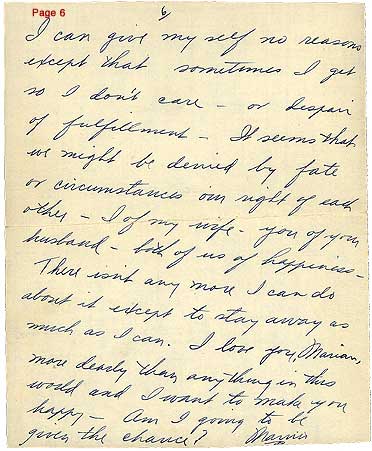 Page 6
6
I can give my self no reasons
except that sometimes I get
so I don't care - or despair
of fulfillment - It seems that
we might be denied by fate
or circumstances our right of each
other - I of my wife - you of your
husband - both of us of happiness -
There isnt any more I can do
about it except to stay away as
much as I can. I love you, Marian,
more dearly than anything in this
world and I want to make you
happy - Am I going to be
given the chance?